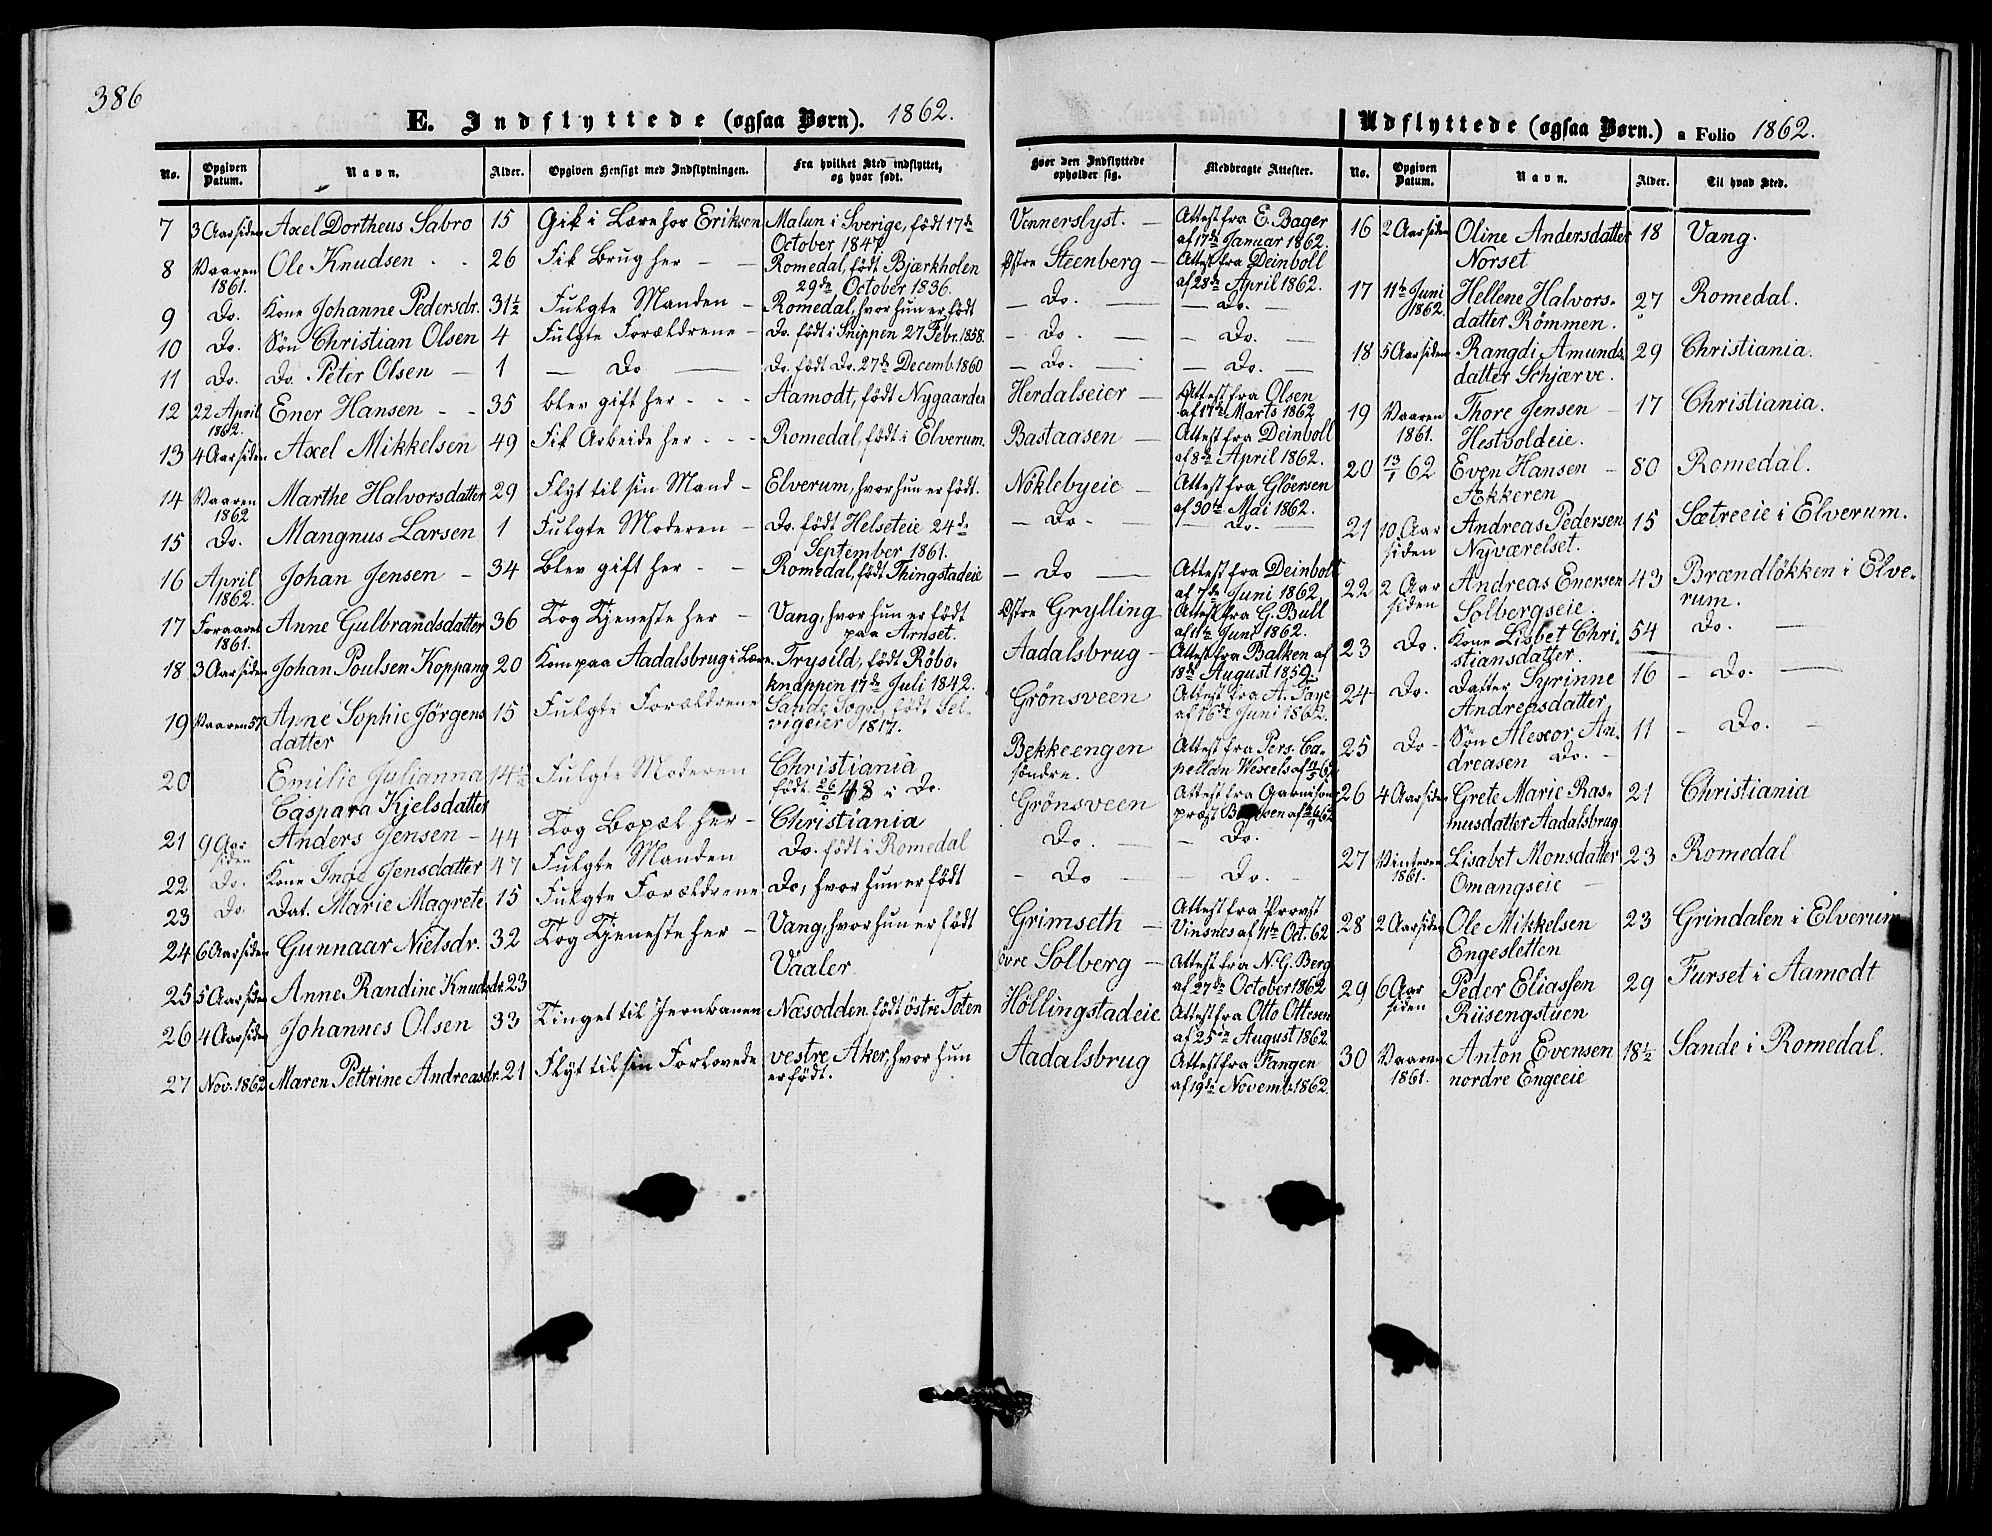 386
E. Indflyttede (ogsaa Børn). 1862.
No. | Opgiven Datum. | Navn. | Alder. | Opgiven Hensigt med Indflytningen. | Fra hvilket Sted indflyttet, og hvor født. | Hvor den Indflyttede opholder sig. | Medbragte Attester.
7 | 3 Aar siden | Axel Dortheus Sabro | 15 | Gik i Lære hos Eriksen | Malun i Sverige, født 17de October 1847 | Vennerslyst. — | Attest fra E. Bager af 17de Januar 1862.
8 | Vaaren 1861. | Ole Knudsen | 26 | Fik Brug her — | Romedal, født Bjærkholen 29de October 1836. | Østre Steenberg — | Attest fra Deinboll af 28de April 1862.
9 | Do. | Kone Johanne Pedersdr. | 31½ | Fulgte Manden — | Romedal, hvor hun er født | — Do. — | — Do. —
10 | Do. | Søn Christian Olsen | 4 | Fulgte Forældrene — | Do. født i Snippen 27 Febr. 1858. | — Do. — | — Do. —
11 | Do. | Do. Peter Olsen — | 1 | — Do — | Do. født Do. 27de Decemb. 1860 | — Do. — | — Do. —
12 | 22 April 1862. | Ener Hansen - - | 35 | blev gift her - - - | Aamodt, født Nygaarden | Herdalseier — | Attest fra Olsen af 17de Marts 1862
13 | 4 Aar siden | Axel Mikkelsen | 49 | Fik Arbeide her - - - | Romedal, født i Elverum. | Bastaasen — | Attest fra Deinboll af 8de April 1862.
14 | Vaaren 1862 | Marthe Halvorsdatter | 29 | Flyt til sin Mand - | Elverum, hvor hun er født. | Nöklebyeie — | Attest fra Glöersen af 30te Mai 1862.
15 | Do. | Mangnus Larsen | 1 | Fulgte Moderen — | Do. født Helseteie 24de September 1861. | — Do - | — Do. —
16 | April 1862. | Johan Jensen — | 34 | Blev gift her - - | Romedal, født Thingstadeie | — Do — | Attest fra Deinboll af 7de Juni 1862.
17 | Foraaret 1861. | Anne Gulbrandsdatter | 36 | Tog Tjeneste her — | Vang, hvor hun er født paa Arnset. | Østre Grylling | Attest fra G. Bull af 11te Juni 1862.
18 | 3 Aar siden | Johan Poulsen Koppang | 20 | Kom paa Aadalsbrug i Lære. | Trysild, født Röboknappen 17de Juli 1842. | Aadalsbrug — | Attest fra Balken af 18de August 1859.
19 | Vaaren 57 | Anne Sophie Jörgensdatter | 15 | Fulgte Forældrene | Sande Sogn, født Selvigeier 1817. | Grönsveen | Attest fra A. Faye af 16de Juni 1862.
20 | Emilie Julianna Caspara Kjelsdatter | 14½ | Fulgte Moderen | Christiania født 26/2 48 i Do. | Bekkeengen söndre. | Attest fra Pers. Capellan Wexels af
21 | 9 Aar siden | Anders Jensen — | 44 | Tog Bopæl her — | Christiania Do. født i Romedal | Grönsveen Do. — | Attest fra Garnisonsprøst
22 | Do. | Kone Inge Jensdatter | 47 | Fulgte Manden | Do, hvor hun er født | - Do. — | - Do.
23 | Do. | Dat. Marie Magrete | 15 | Fulgte Forældrene | - Do — | — Do. -
24 | 6 Aar siden | Gunnaar Nielsdr. | 32 | Tog Tjeneste her — | Vang, hvor hun er født | Grimseth — | Attest fra Provst Vinsnes af 11te Oct. 62
25 | 5 Aar siden | Anne Randine Knudsdr. | 23 | Vaaler | övre Solberg — | Attest fra N. G. Berg af 27de October 1862
26 | 4 Aar siden | Johannes Olsen | 33 | Tinget til Jernbanen | Næsodden født östre Toten | Höllingstadeie | Attest fra Otto Ottesen af 25de August 1862.
27 | Nov. 1862 | Maren Pettrine Andreasdr. | 21 | Flyt til sin Forlovede | vestre Aker, hvor hun er født. | Aadalsbrug | Attest fra Fangen af 19de Novemb. 1862.
Udflyttede (ogsaa Børn.) a Folio 1862.
No. | Opgiven Datum. | Navn. | Alder. | Til hvad Sted.
16 | 2 Aar siden | Oline Andersdatter Norset | 18 | Vang.
17 | 11te Juni 1862. | Hellene Halvorsdatter Römmen. | 27 | Romedal.
18 | 5 Aar siden | Rangdi Amundsdatter Schjærve. | 29 | Christiania.
19 | Vaaren 1861. | Thore Jensen — Hestvoldeie. | 17 | Christiania.
20 | 13/1 62 | Even Hansen — Ækkeren | 80 | Romedal.
21 | 10 Aar siden | Andreas Pedersen Nyværelset. | 15 | Sætreeie i Elverum.
22 | 2 Aar siden | Andreas Enersen Solbergseie. | 43 | Brændlökken i Elverum.
23 | Do. | Kone Lisbet Christiansdatter. | 54 | Do. —
24 | Do. | Datter Syrinne Andreasdatter | 16 | — Do. —
25 | Do - | Søn Alexor Andreasen Do. - | 11 | - Do. -
26 | 4 Aar siden | Grete Marie Rasmusdatter Aadalsbrug | 21 | Christiania
27 | Vinteren 1861. | Lisabet Monsdatter Omangseie — | 23 | Romedal
28 | 2 Aar siden | Ole Mikkelsen Engesletten | 23 | Grindalen i Elverum
29 | 6 Aar siden | Peder Eliassen Riisengstuen | 29 | Furset i Aamodt
30 | Vaaren 1861. | Anton Evensen nordre Engeeie | 18½ | Sande i Romedal.